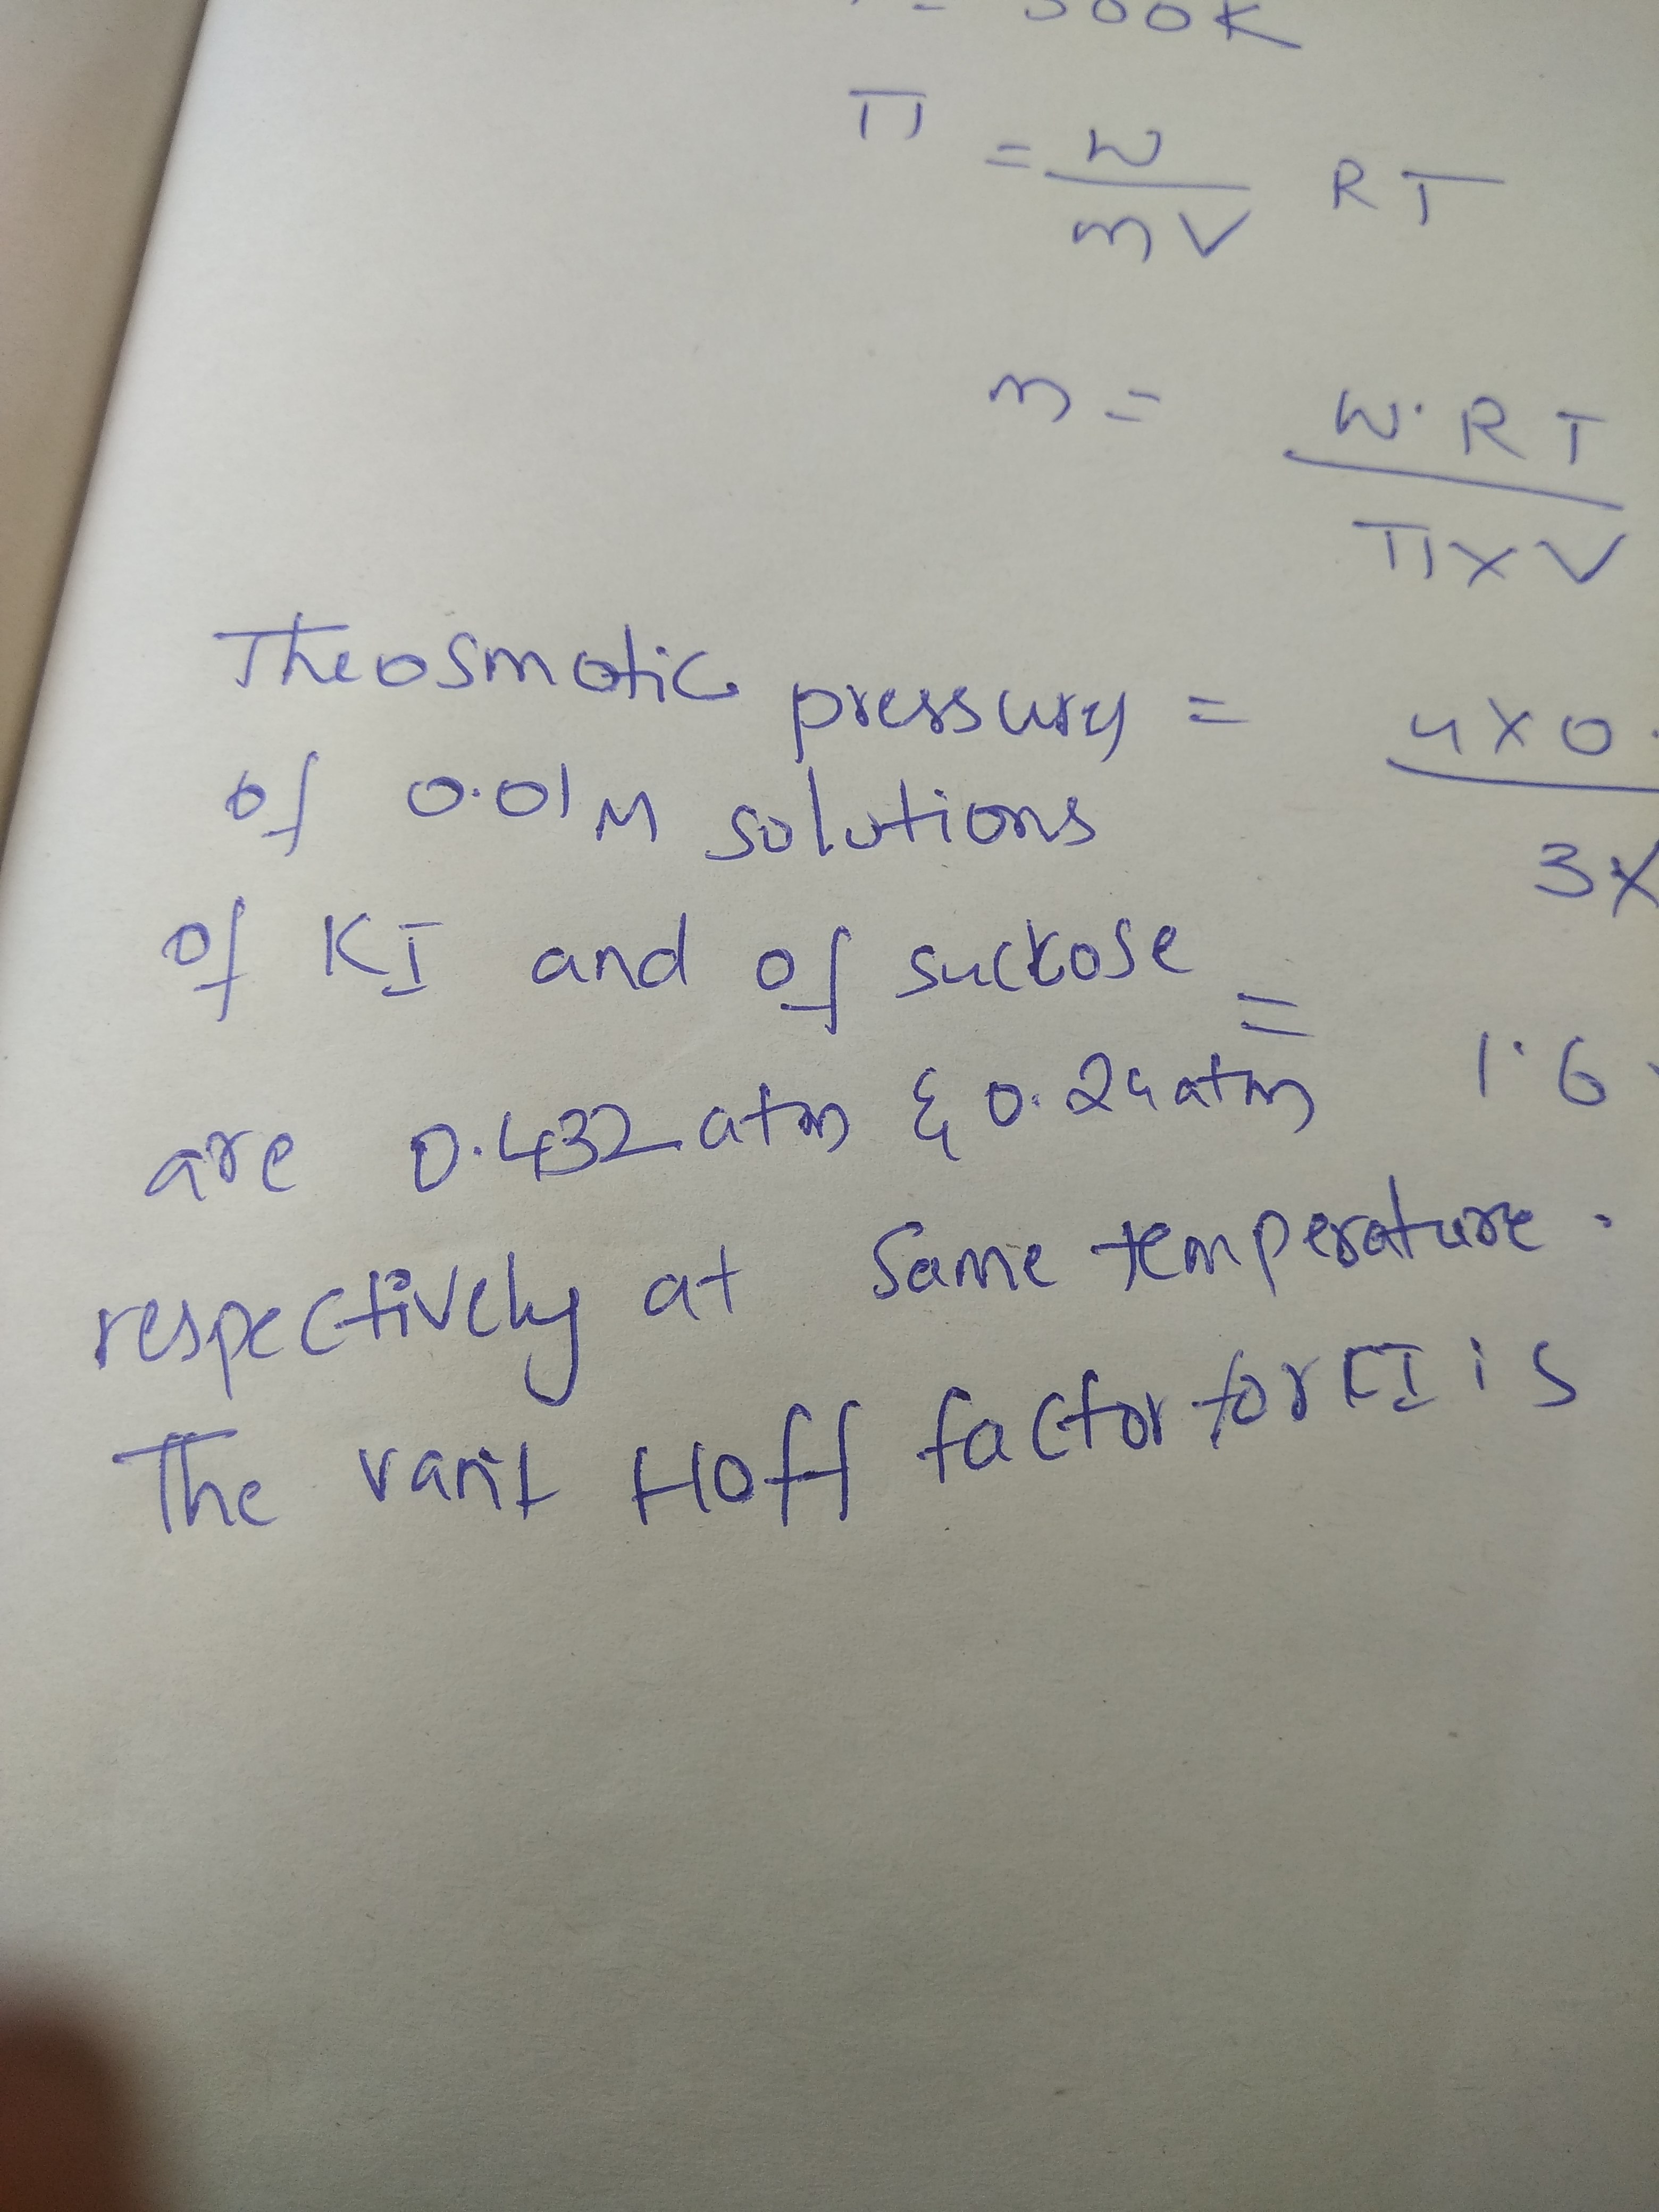 = 300K
π = w/mV RT
m = W·RT/π×V
The osmotic pressures = 4×0.
of 0.01M solutions
3×
of KI and of sucrose =
are 0.432 atm & 0.24 atm 1.6
respectively at same temperature.
The vant Hoff factor for KI is